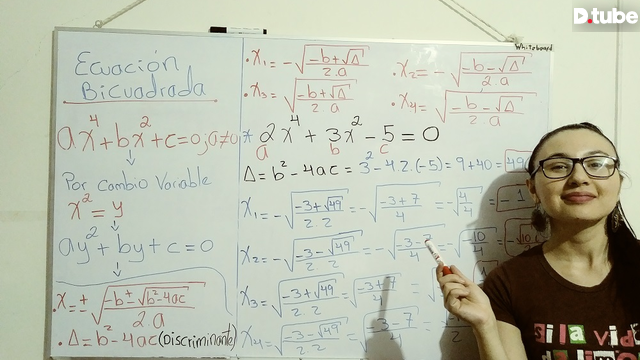 D.tube
Whiteboard
Ecuación
Bicuadrada
ax⁴+bx²+c=0; a≠0
Por cambio Variable
x²=y
ay²+by+c=0
• x=±√((-b±√(b²-4ac))/(2.a))
• Δ=b²-4ac (Discriminante)
• x₁=-√((-b+√Δ)/(2.a))
x₂=-√((-b-√Δ)/(2.a))
• x₃=√((-b+√Δ)/(2.a))
x₄=√((-b-√Δ)/(2.a))
* 2x⁴+3x²-5=0
a b c
Δ=b²-4ac=3²-4.2.(-5)=9+40=49
x₁=-√((-3+√49)/(2.2))=-√((-3+7)/4)=-√(4/4)=-1
x₂=-√((-3-√49)/(2.2))=-√((-3-7)/4)=-√(-10/4)
x₃=√((-3+√49)/(2.2))=√((-3+7)/4)
x₄=√((-3-√49)/(2.2))=√((-3-7)/4)
si la vida